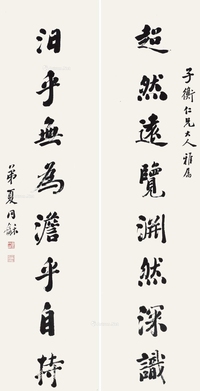 子衡仁兄大人雅屬
超然遠覽渊然深識
汨乎無為澹乎自持
弟夏同龢